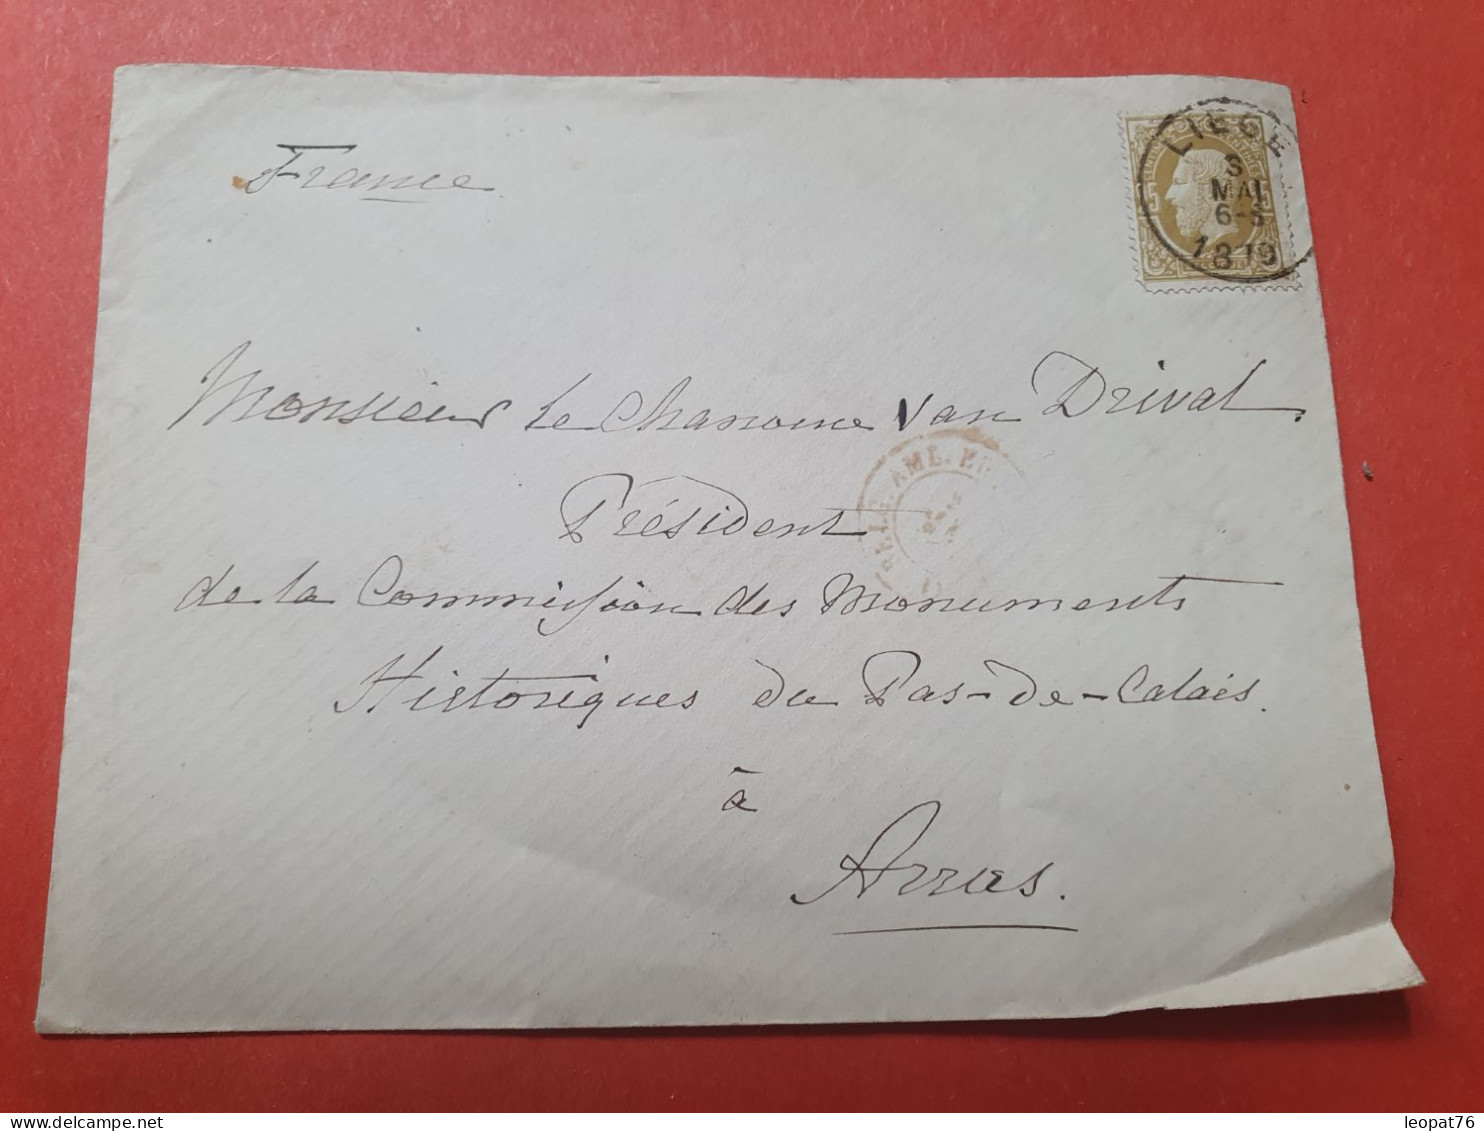 France
LIEGE
MAI
6-S
1879
Monsieur le Chanoine Van Drival.
Président
de la Commission des Monuments
Historiques du Pas-de-Calais.
à
Arras.
BELG. AML.
leopat76
www.delcampe.net